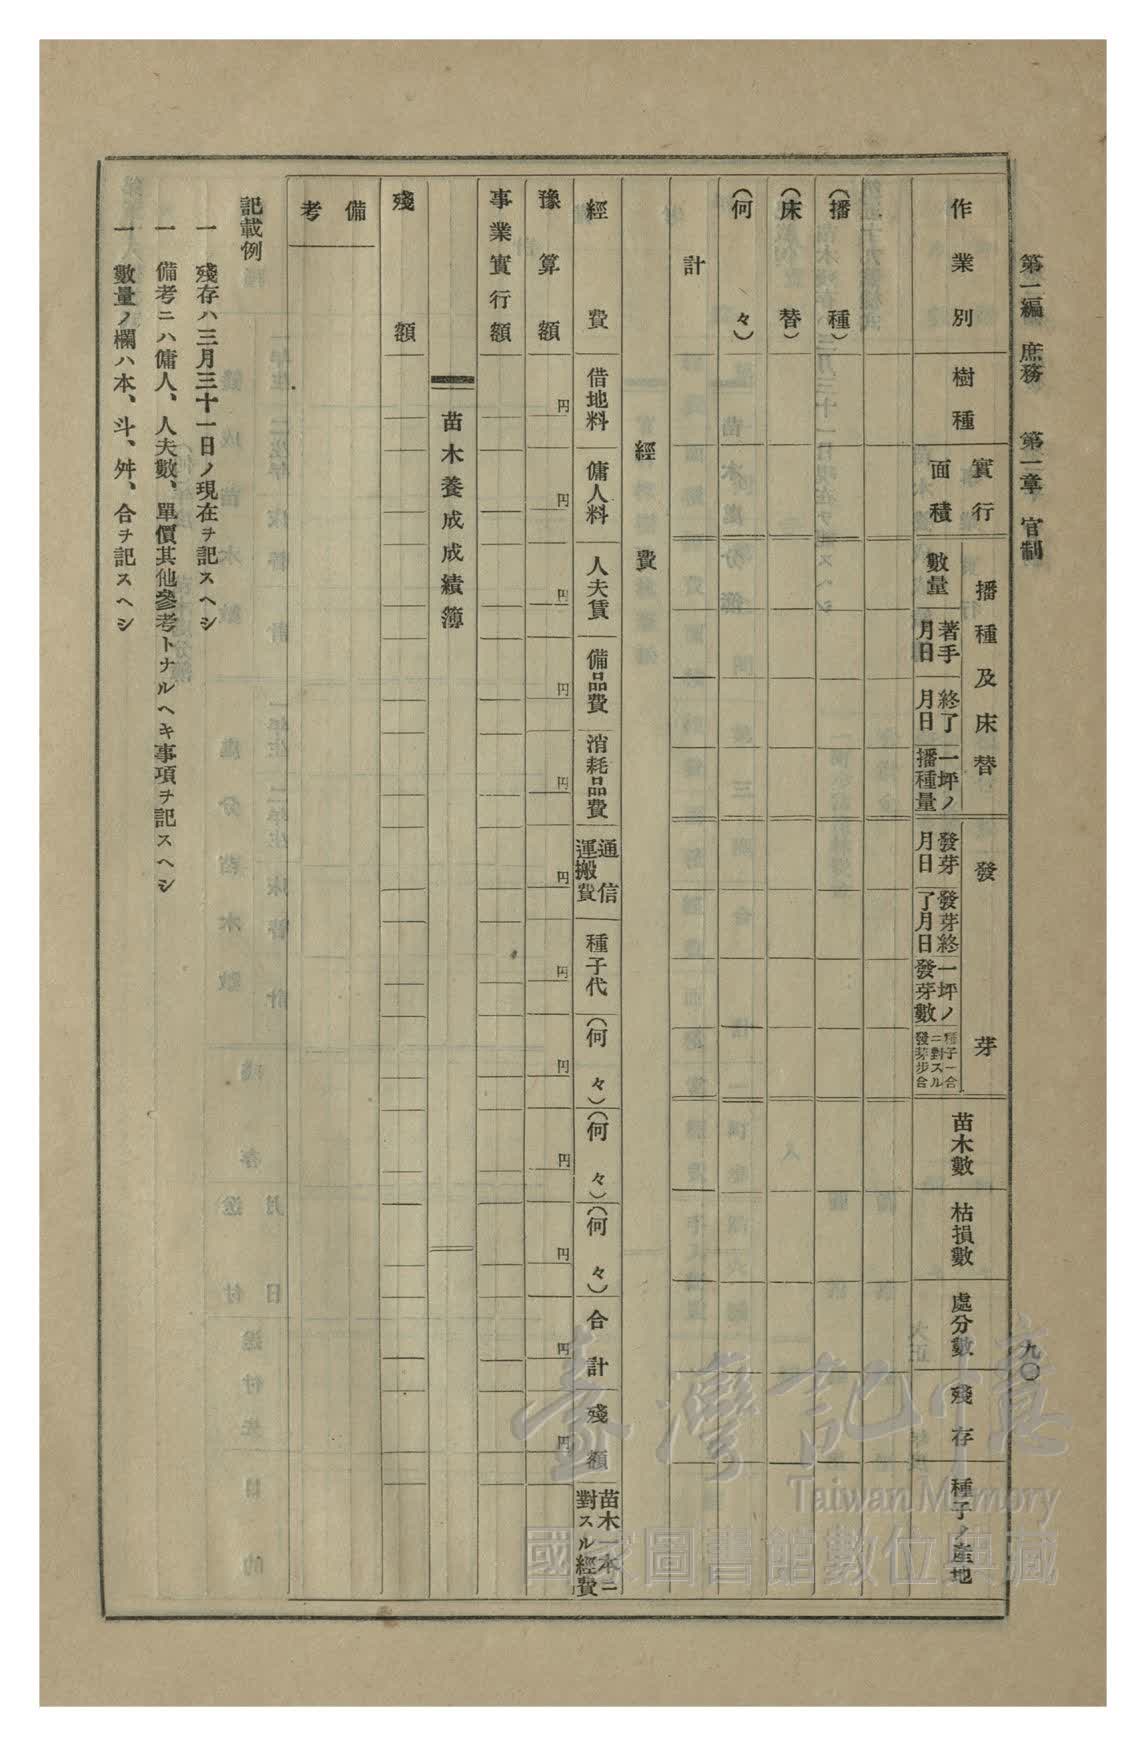 第一編 庶務 第二章 官制
九〇
作業別
樹種
實行面積
播種及床替
數量
著手月日
終了月日
一坪ノ播種量
發芽
發芽月日
發芽終了月日
一坪ノ發芽數
種子一合ニ對スル發芽步合
苗木數
枯損數
處分數
殘存
種子ノ產地
(播種)
(床替)
(何々)
計
經費
經費
借地料
傭人料
人夫賃
備品費
消耗品費
通信運搬費
種子代
(何々)
(何々)
(何々)
合計
殘額
苗木一本ニ對スル經費
豫算額
円
円
円
円
円
円
円
円
円
円
円
円
事業實行額
苗木養成成績簿
殘額
備考
記載例
一 殘存ハ三月三十一日ノ現在ヲ記スヘシ
一 備考ニハ傭人、人夫數、單價其他參考トナルヘキ事項ヲ記スヘシ
一 數量ノ欄ハ本、斗、舛、合ヲ記スヘシ
臺灣記憶
Taiwan Memory
國家圖書館數位典藏